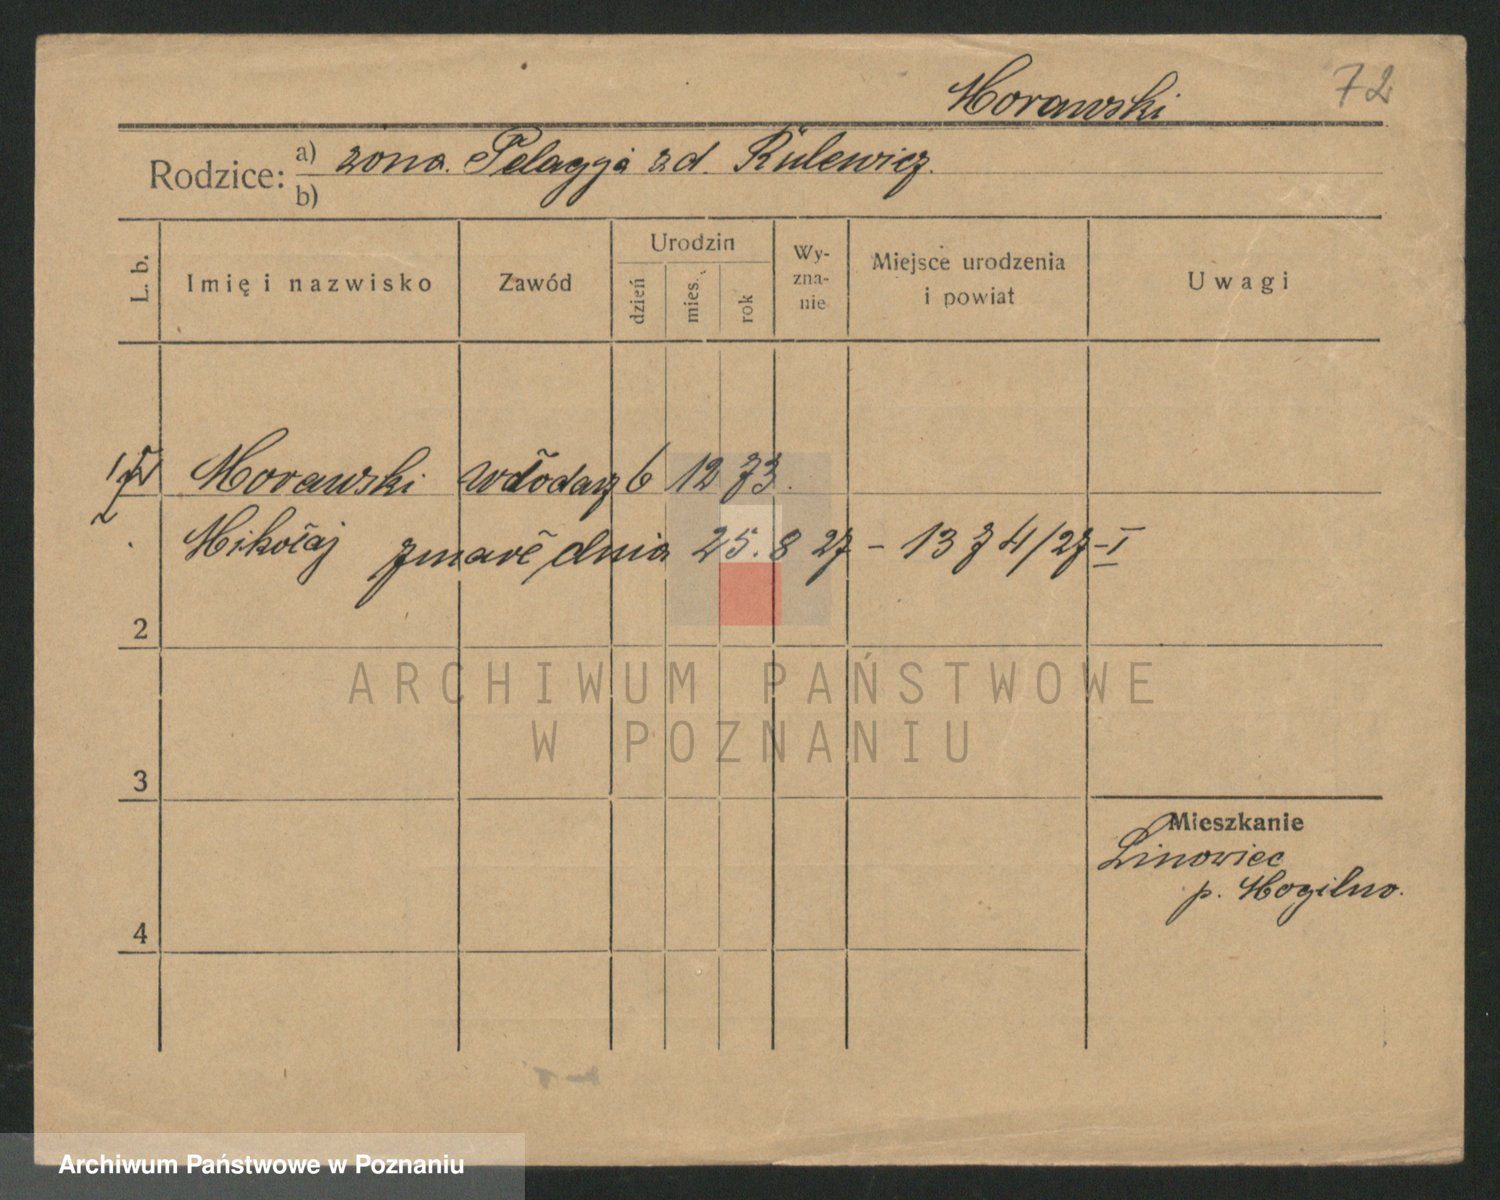 Morawski 72
Rodzice: a) zona. Pelagja zd. Rulewicz.
b)
L. b. Imię i nazwisko Zawód Urodzin dzień mies. rok Wy-zna-nie Miejsce urodzenia i powiat Uwagi
1 Morawski włodarz 6 12 73.
Mikołaj zmarł dnia 25. 8 27 – 1374/27–I
2
3
Mieszkanie
Linowiec
p. Mogilno.
4
ARCHIWUM PAŃSTWOWE
W POZNANIU
Archiwum Państwowe w Poznaniu